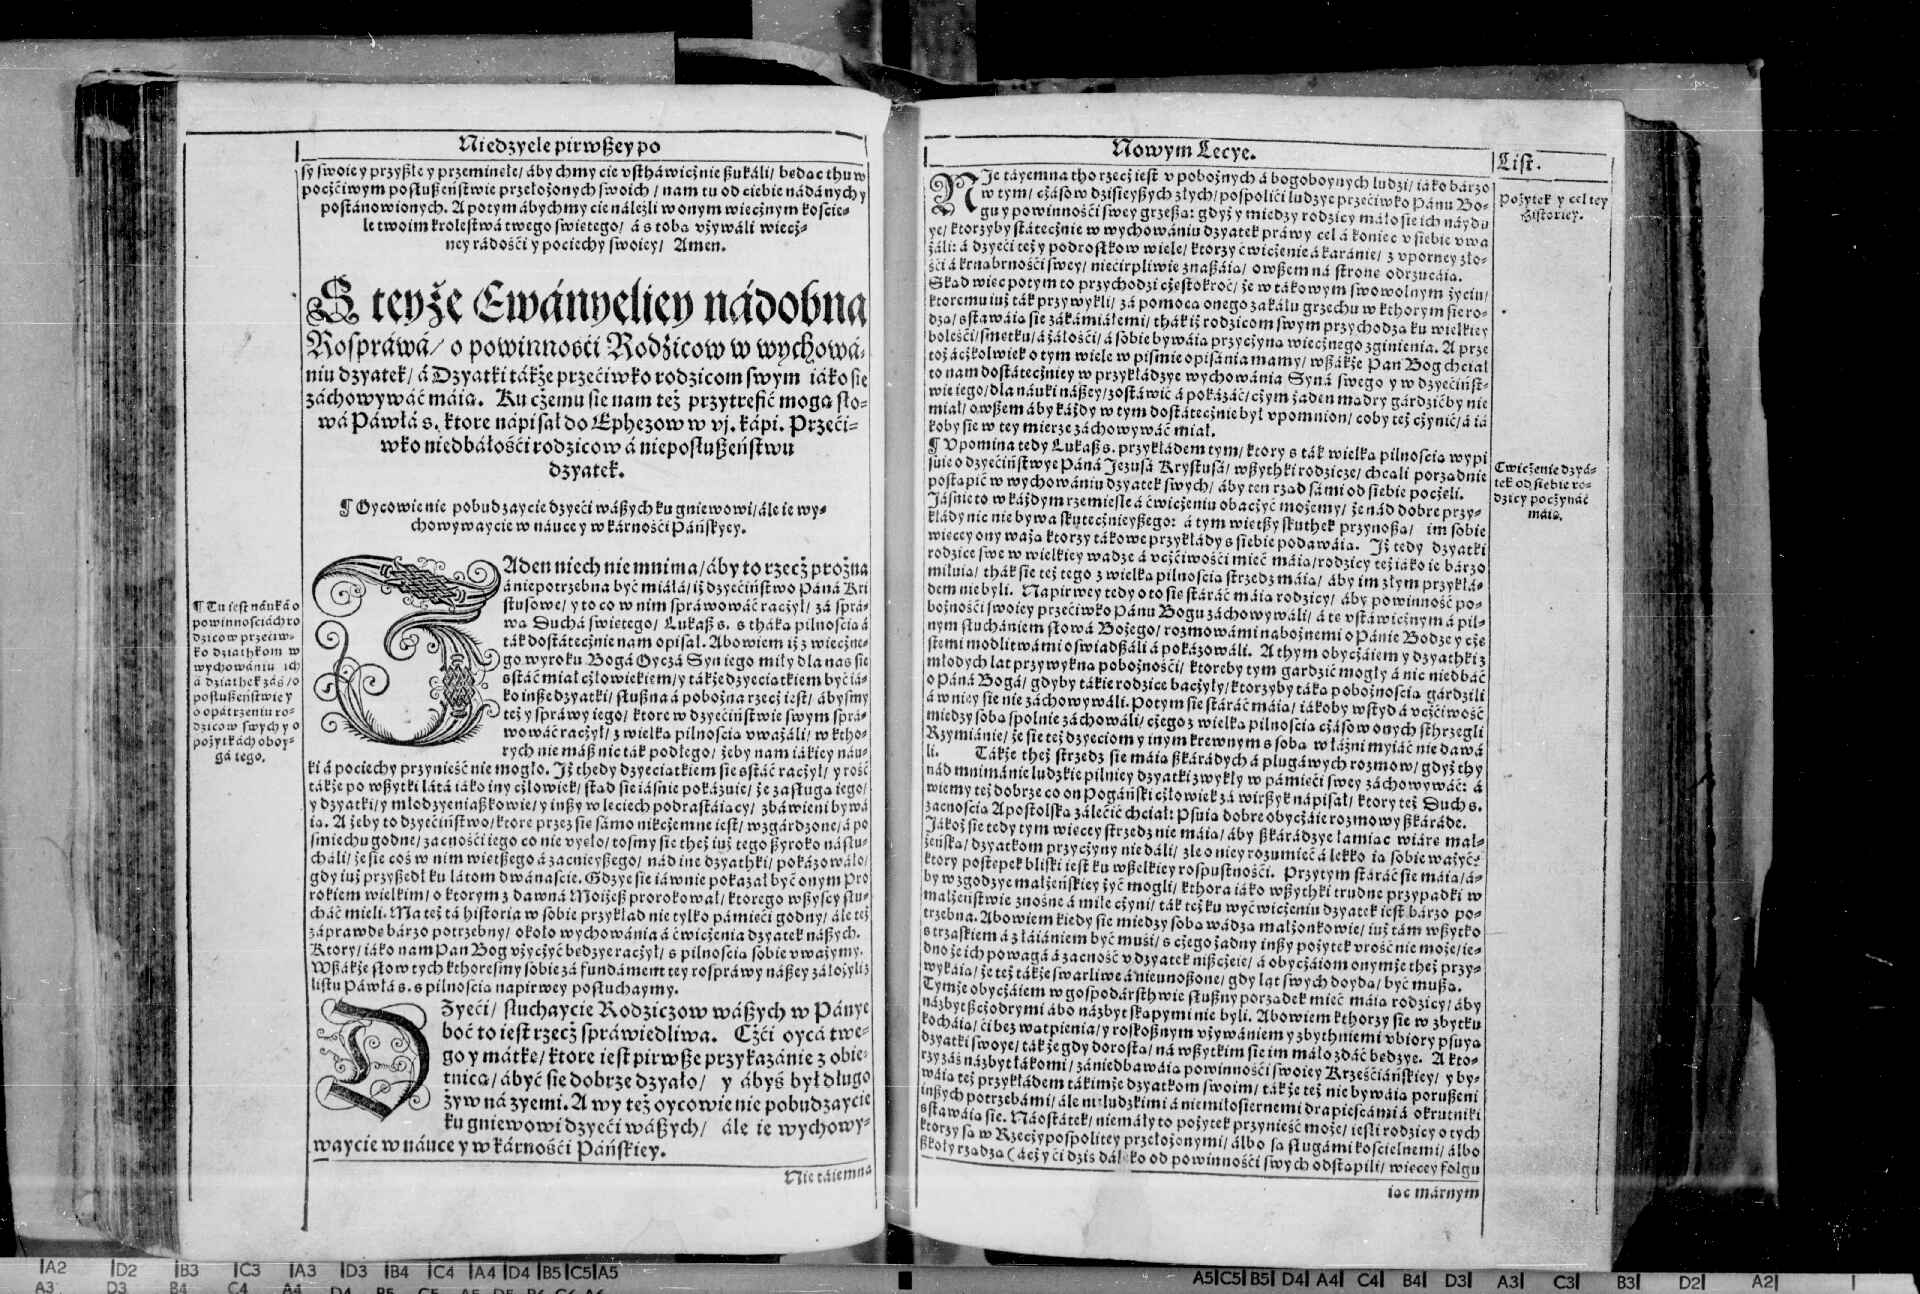 Niedzyele pirwßey po
sy swoie y przyßłe y przeminęłe/ áby chmy cie vstháwicżnie ßukáli/ będąc thu w
pocżćiwym posłußeństwie przełożonych swoich/ nam tu od ciebie nádánych y
postánowionych. A potym ábychmy cie náleźli w onym wiecżnym koście-
le twoim krolestwá twego swiętego/ á s tobą vżywáli wiecż-
ney rádośći y pociechy swoiey/ Amen.
S teyże Ewányeliey nádobna
Rospráwá/ o powinnośći Rodżicow w wychowá-
niu dzyatek/ á Dzyatki tákże przećiwko rodzicom swym iáko sie
záchowywáć máią. Ku cżemu sie nam też przytrefić mogą sło-
wá Páwłá s. ktore nápisał do Ephezow w vj. kápi. Przeći-
wko niedbáłośći rodzicow á nieposłußeństwu
dzyatek.
¶ Oycowie nie pobudzaycie dzyeći wáßych ku gniewowi/ ále ie wy-
chowywaycie w náuce y w kárnośći Páńskyey.
¶ Tu iest náuká o
powinnosciách ro
dzicow przećiw-
ko dziathkom w
wychowániu ich
á dziathek záś/ o
posłußeństwie y
o opátrzeniu ro-
dzicow swych y o
pożytkách oboy-
gá tego.
ŻAden niech nie mnima/ áby to rzecż prożna
á niepotrzebna być miáłá/ iż dzyećiństwo Páná Kri
stusowe/ y to co w nim spráwowáć racżył/ zá sprá-
wą Duchá swiętego/ Lukaß s. s thaką pilnoscią á
ták dostátecżnie nam opisał. Abowiem iż z wiecżne-
go wyroku Bogá Oycá Syn iego miły dla nas sie
sstáć miał cżłowiekiem/ y tákże dzyeciatkiem być iá-
ko inße dzyatki/ słußna á pobożna rzecż iest/ ábysmy
też y spráwy iego/ ktore w dzyećiństwie swym sprá-
wowáć racżył/ z wielką pilnoscią vważáli/ w ktho-
rych nie máß nic ták podłego/ żeby nam iákiey náu-
ki á pociechy przynieść nie mogło. Iż thedy dzyeciatkiem sie sstáć racżył/ y rość
tákże po wßytki látá iáko iny cżłowiek/ stąd sie iásnie pokázuie/ że zasługą iego/
y dzyatki/ y młodzyeniaßkowie/ y inßy w leciech podrastáiący/ zbáwieni bywá
ią. A żeby to dzyećiństwo/ ktore przez sie sámo nikcżemne iest/ wzgárdzone/ á po
śmiechu godne/ zacnośći iego co nie vyęło/ tosmy sie też iuż tego ßyroko násłu-
cháli/ że sie coś w nim więtßego á zacnieyßego/ nád ine dzyathki/ pokázowáło/
gdy iuż przyßedł ku látom dwánascie. Gdzye sie iáwnie pokazał być onym Pro
rokiem wielkim/ o ktorym z dawná Moiżeß prorokował/ ktorego wßyscy słu-
cháć mieli. Ma też tá historia w sobie przykład nie tylko pámięći godny/ ále też
záprawdę bárzo potrzebny/ około wychowánia á ćwicżenia dzyatek náßych.
Ktory/ iáko nam Pan Bog vżycżyć bedzye racżył/ s pilnoscią sobie vważymy.
Wßákże słow tych kthoresmy sobie zá fundáment tey rospráwy náßey záłożyli z
listu Páwłá s. s pilnoscią napirwey posłuchaymy.
DZyeći/ słuchaycie Rodzicżow wáßych w Pánye
boć to iest rzecż spráwiedliwa. Cżći oycá twe-
go y mátkę/ ktore iest pirwße przykazánie z obie-
tnicą/ ábyć sie dobrze dzyało/ y ábyś był długo
żyw ná zyemi. A wy też oycowie nie pobudzaycie
ku gniewowi dzyeći wáßych/ ále ie wychowy-
waycie w náuce y w kárnośći Páńskiey.
Nie táiemna
Nowym Lecye.
List.
NIe táyemna tho rzecż iest v pobożnych á bogoboynych ludzi/ iáko bárzo
w tym/ cżásow dzisieyßych złych/ pospolići ludzye przećiwko Pánu Bo-
gu y powinnośći swey grzeßą: gdyż y miedzy rodzicy máło sie ich náydu
ye/ ktorzyby státecżnie w wychowániu dzyatek práwy cel á koniec v siebie vwa
żáli: á dzyeći też y podrostkow wiele/ ktorzy ćwicżenie á karánie/ z vporney zło-
śći á krnąbrnośći swey/ niecirpliwie znaßáią/ owßem ná stronę odrzucáią.
Skąd więc potym to przychodzi cżęstokroć/ że w tákowym swowolnym życiu/
ktoremu iuż ták przywykli/ zá pomocą onego zakáłu grzechu w kthorym sie ro-
dzą/ sstawáią sie zákámiáłemi/ thák iż rodzicom swym przychodzą ku wielkiey
boleśći/ smętku/ á żáłośći/ á sobie bywáią przycżyną wiecżnego zginienia. A prze
toż ácżkolwiek o tym wiele w piśmie opisánia mamy/ wßákże Pan Bog chciał
to nam dostátecżniey w przykłádzye wychowánia Syná swego y w dzyećińst-
wie iego/ dla náuki náßey/ zostáwić á pokázáć/ cżym żaden mądry gárdzićby nie
miał/ owßem áby káżdy w tym dostátecżnie był vpomnion/ coby też cżynić/ á iá
koby sie w tey mierze záchowywáć miał.
¶ Vpomina tedy Lukaß s. przykłádem tym/ ktory s ták wielką pilnoscią wypi
suie o dzyećiństwye Páná Jezusá Krystusá/ wßythki rodzicże/ chcąli porządnie
postąpić w wychowániu dzyatek swych/ áby ten rząd sámi od siebie pocżęli.
Jásnie to w káżdym rzemiesle á ćwicżeniu obacżyć możemy/ że nád dobre przy-
kłády nic nie bywa skutecżnieyßego: á tym więtßy skuthek przynoßą/ im sobie
więcey ony ważą ktorzy tákowe przykłády s siebie podawáią. Iż tedy dzyatki
rodzice swe w wielkiey wadze á vcżćiwośći mieć máią/ rodzicy też iáko ie bárzo
miłuią/ thák sie też tego z wielką pilnoscią strzedz máią/ áby im złym przykłá-
dem nie byli. Napirwey tedy o to sie stáráć máią rodzicy/ áby powinność po-
bożnośći swoiey przećiwko Pánu Bogu záchowywáli/ á tę vstáwicżnym á pil-
nym słuchániem słowá Bożego/ rozmowámi nabożnemi o Pánie Bodze y cżę
stemi modlitwámi oświadßáli á pokázowáli. A thym obycżáiem y dzyathki z
młodych lat przywykną pobożnośći/ ktoreby tym gárdzić mogły á nic niedbáć
o Páná Bogá/ gdyby tákie rodzice bacżyły/ ktorzyby táką pobożnoscią gárdzili
á w niey sie nie záchowywáli. Potym sie stáráć máią/ iákoby wstyd á vcżćiwość
miedzy sobą spolnie záchowáli/ cżego z wielką pilnoscią cżásow onych strzegli
Rzymiánie/ że sie też dzyeciom y inym krewnym s sobą w łáźni myiáć nie dawá
li. Tákże też strzedz sie máią ßkárádych á plugáwych rozmow/ gdyż thy
nád mnimánie ludzkie pilniey dzyatki zwykły w pámięći swey záchowywáć: á
wiemy też dobrze co on Pogáński cżłowiek zá wirßyk nápisał/ ktory też Duch s.
zacnoscią Apostolską zálećić chciał: Psuią dobre obycżáie rozmowy ßkáráde.
Jákoż sie tedy tym więcey strzedz nie máią/ áby ßkárádzye łamiąc wiárę mał-
żeńską/ dzyatkom przycżyny nie dáli/ źle o niey rozumieć á lekko ią sobie ważyć:
ktory postępek bliski iest ku wßelkiey rospustnośći. Przytym stáráć sie máią/ á-
by w zgodzye máłżeńskiey żyć mogli/ kthora iáko wßythki trudne przypadki w
małżeństwie znośne á miłe cżyni/ ták też ku wyćwicżeniu dzyatek iest bárzo po-
trzebna. Abowiem kiedy sie miedzy sobą wádzą małżonkowie/ iuż tám wßytko
s trzaskiem á z łáiániem być muśi/ s cżego żadny inßy pożytek vrość nie może/ ie-
dno że ich powagá á zacność v dzyatek nißcżeie/ á obycżáiom onymże też przy-
wykáią/ że też tákże swarliwe á nieunoßone/ gdy lat swych doydą/ być mußą.
Tymże obycżáiem w gospodársthwie słußny porządek mieć máią rodzicy/ áby
názbyt ßcżodrymi ábo názbyt skąpymi nie byli. Abowiem kthorzy sie w zbytku
kocháią/ ći bez wątpienia/ y roskoßnym vżywániem y zbythniemi vbiory psuyą
dzyatki swoye/ tákże gdy dorostą/ ná wßytkim sie im máło zdáć będzye. A kto-
rzy záś názbyt łákomi/ zániedbawáią powinnośći swoiey Krześćiáńskiey/ y by-
wáią też przykłádem tákimże dzyatkom swoim/ tákże też nie bywáią porußeni
inßych potrzebámi/ ále nieludzkimi á niemiłosiernemi drapieścámi á okrutniki
sstawáią sie. Náostátek/ niemáły to pożytek przynieść może/ iesli rodzicy o tych
ktorzy są w Rzecżypospolitey przełożonymi/ álbo są sługámi kościelnemi/ álbo
ßkoły rządzą (ácż y ći dziś dáleko od powinnośći swych odstąpili/ więcey folgu
iąc márnym
Pożytek y cel tey
Historiey.
Cwicżenie dzyá-
tek od siebie ro-
dzicy pocżynáć
máią.
A2 D2 B3 C3 A3 D3 B4 C4 A4 D4 B5 C5 A5
A5 C5 B5 D4 A4 C4 B4 D3 A3 C3 B3 D2 A2
A3 D3 B4 C4 A4 D4 B5 C5 A5 D5 B6 C6 A6